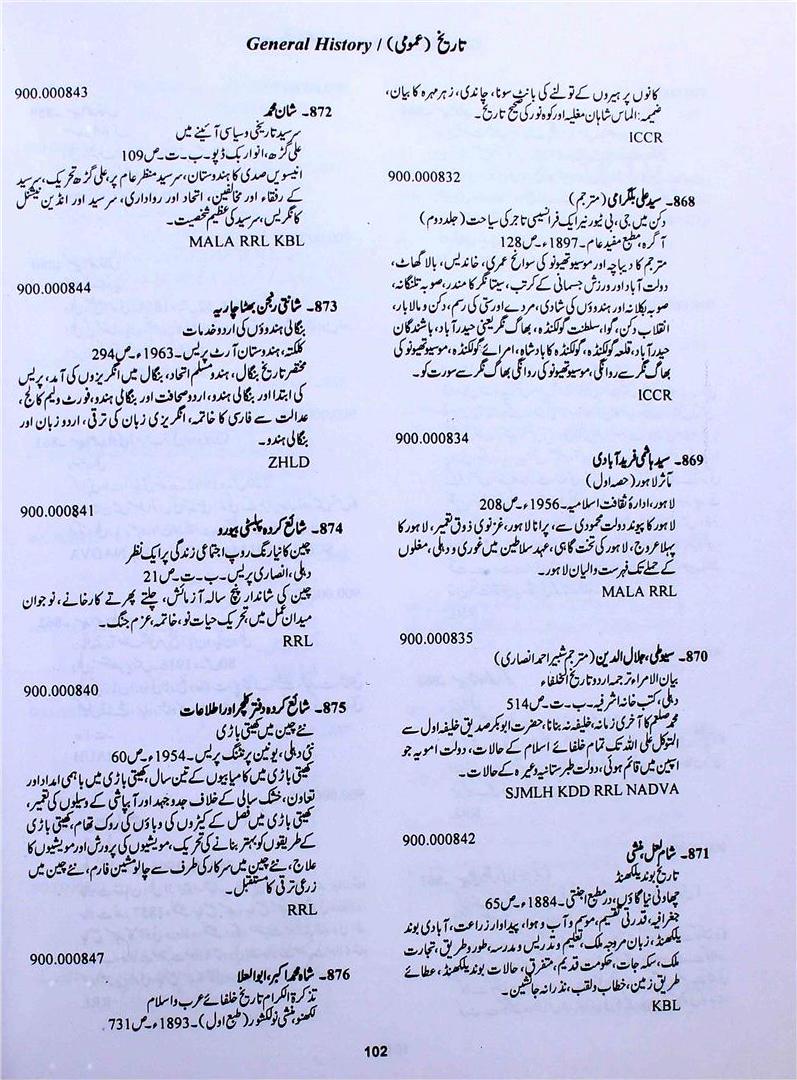 تاریخ (عمومی) / General History
کانوں پر ہیروں کے تولنے کی بانٹ سونا، چاندی، زہر مہرہ کا بیان،
ضمیمہ: الماس شاہان مغلیہ اور کوہ نور کی صحیح تاریخ۔
ICCR
900.000832
868۔ سید علی بلگرامی (مترجم)
دکن میں جی، بی ٹیور نیر ایک فرانسیسی تاجر کی سیاحت (جلد دوم)
آگرہ، مطبع مفید عام۔ 1897ء۔ ص128
مترجم کا دیباچہ اور موسیو تھیونو کی سوانح عمری، خاندیس، بالا گھاٹ،
دولت آباد اور ورزش جسمانی کے کرتب، سیتا نگر کا مندر، صوبہ تلنگانہ،
صوبہ بگلانہ اور ہندوؤں کی شادی، مردے اور ستی کی رسم، دکن و مالابار،
انقلاب دکن، گوا، سلطنت گولکنڈہ، بھاگ نگر یعنی حیدرآباد، باشندگان
حیدرآباد، قلعہ گولکنڈہ، گولکنڈہ کا بادشاہ، امرائے گولکنڈہ، موسیو تھیونو کی
بھاگ نگر سے روانگی، موسیو تھیونو کی روانگی بھاگ نگر سے سورت کو۔
ICCR
900.000834
869۔ سید ہاشمی فرید آبادی
مآثر لاہور (حصہ اول)
لاہور، ادارۂ ثقافت اسلامیہ۔ 1956ء۔ ص208
لاہور کا پیوند دولت محمودی سے، پرانا لاہور، غزنوی ذوق تعمیر، لاہور کا
پہلا عروج، لاہور کی تخت گاہی، عہد سلاطین میں غوری و دہلی، مغلوں
کے حملے تک فہرست والیان لاہور۔
MALA RRL
900.000835
870۔ سیوطی، جلال الدین (مترجم شبیر احمد انصاری)
بیان الامراء ترجمہ اردو تاریخ الخلفاء
دہلی، کتب خانہ اشرفیہ۔ ب۔ت۔ ص514
محمد صلعم کا آخری زمانہ، خلیفہ نہ بنانا، حضرت ابوبکر صدیق خلیفہ اول سے
التوکل علی اللہ تک تمام خلفائے اسلام کے حالات، دولت امویہ جو
اسپین میں قائم ہوئی، دولت طبرستانیہ وغیرہ کے حالات۔
SJMLH KDD RRL NADVA
900.000842
871۔ شام لعل، منشی
تاریخ بوندیلکھنڈ
چھاونی نیا گاؤں، در مطبع اجنتی۔ 1884ء۔ ص65
جغرافیہ، قدرتی تقسیم، موسم و آب و ہوا، پیداوار زراعت، آبادی بوند
یلکھنڈ، زبان مروجہ ملک، تعلیم و تدریس و مدرسہ، طور و طریق، تجارت
ملک، سکہ جات، حکومت قدیم، متفرق، حالات بوندیلکھنڈ، عطائے
طریق زمین، خطاب و لقب، نذرانہ جانشین۔
KBL
900.000843
872۔ شان محمد
سرسید تاریخی و سیاسی آئینے میں
علی گڑھ، انوار بک ڈپو۔ ب۔ت۔ ص109
انیسویں صدی کا ہندوستان، سرسید منظر عام پر، علی گڑھ تحریک، سرسید
کے رفقاء اور مخالفین، اتحاد اور رواداری، سرسید اور انڈین نیشنل
کانگریس، سرسید کی عظیم شخصیت۔
MALA RRL KBL
900.000844
873۔ شانتی رنجن بھٹاچاریہ
بنگالی ہندوؤں کی اردو خدمات
کلکتہ، ہندوستان آرٹ پریس۔ 1963ء۔ ص294
مختصر تاریخ بنگال، ہندو مسلم اتحاد، بنگال میں انگریزوں کی آمد، پریس
کی ابتدا اور بنگالی ہندو، اردو صحافت اور بنگالی ہندو، فورٹ ولیم کالج،
عدالت سے فارسی کا خاتمہ، انگریزی زبان کی ترقی، اردو زبان اور
بنگالی ہندو۔
ZHLD
900.000841
874۔ شائع کردہ پبلسٹی بیورو
چین کا نیا رنگ روپ اجتماعی زندگی پر ایک نظر
دہلی، انصاری پریس۔ ب۔ت۔ ص21
چین کی شاندار پنچ سالہ آزمائش، چلتے پھرتے کارخانے، نوجوان
میدان عمل میں، تحریک حیات نو، خاتمہ، عزم جنگ۔
RRL
900.000840
875۔ شائع کردہ دفتر کلچر اور اطلاعات
نئے چین میں کھیتی باڑی
نئی دہلی، یونین پرنٹنگ پریس۔ 1954ء۔ ص60
کھیتی باڑی میں کامیابیوں کے تین سال، کھیتی باڑی میں باہمی امداد اور
تعاون، خشک سالی کے خلاف جدوجہد اور آبپاشی کے وسیلوں کی تعمیر،
کھیتی باڑی میں فصل کے کیڑوں کی وباؤں کی روک تھام، کھیتی باڑی
کے طریقوں کو بہتر بنانے کی تحریک، مویشیوں کی پرورش اور مویشیوں کا
علاج، نئے چین میں سرکار کی طرف سے چالو مشین فارم، نئے چین میں
زرعی ترقی کا مستقبل۔
RRL
900.000847
876۔ شاہ محمد اکبر، ابوالعلا
تذکرۃ الکرام تاریخ خلفائے عرب و اسلام
لکھنؤ، منشی نولکشور (طبع اول)۔ 1893ء۔ ص731
102